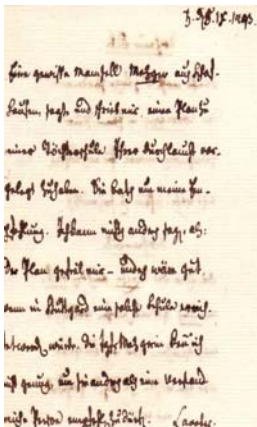 Eine gewisse Mamsell Metzger aus Schaf-
hausen, sagte und schrieb mir, einen Plan zu
einer Töchterschule Ihrer Durchlaucht vor-
gelegt zu haben. Sie bath um meine Em-
pfehlung. Ich kann nichts anders sagen, als:
Der Plan gefiel mir – und es wäre gut,
wenn in Stuttgard eine solche Schule errich-
tet würde. Die Jgfr. Metzgerin kenn' ich
nicht genug, um sie anders als eine verständ-
Person empfehlen zu dürfen. Lavater.